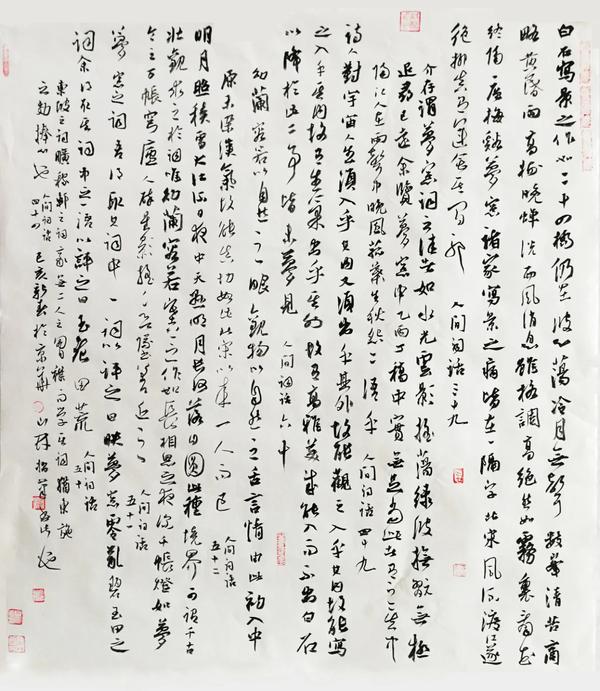 白石寫景之作如二十四橋仍在波心蕩冷月無聲 數峰清苦商
略黃昏雨 高樹晚蟬說西風消息雖格調高絕然如霧裏看花
終隔一層梅溪夢窗諸家寫景之病皆在一隔字北宋風流渡江遂
絕抑真有運會存乎其間耶 人间词话三十九
介存謂夢窗詞之佳者如水光雲影搖蕩綠波撫玩無極
追尋已遠余覽夢窗甲乙丙丁稿中實無足當此者有之其
隔江人在雨聲中晚風菰葉生秋怨二語乎 人间词话四十九
詩人對宇宙人生須入乎其内又須出乎其外故能觀之入乎其内故能寫
之入乎其内故有生氣出乎其外故有高致美成能入而不出白石
以降於此二事皆未夢見 人间词话六十
納蘭容若以自然之眼觀物以自然之舌言情由此初入中
原未染漢氣故能真切如此北宋以來一人而已 人间词话五十二
明月照積雪大江流日夜中天懸明月長河落日圓此種境界可謂千古
壯觀求之於詞唯納蘭容若塞上之作如長相思之夜深千帳燈如夢
令之万帳穹廬人醉星影搖搖欲墜差近之 人间词话五十一
夢窗之詞吾得取其詞中一語以評之曰映夢窗零亂碧玉田之
詞余得取其詞中之語以評之曰玉老田荒 人间词话五十
東坡之詞曠稼軒之詞豪無二人之胸襟而學其詞猶東施
之效捧心也 人间词话四十四 己亥新春於京華